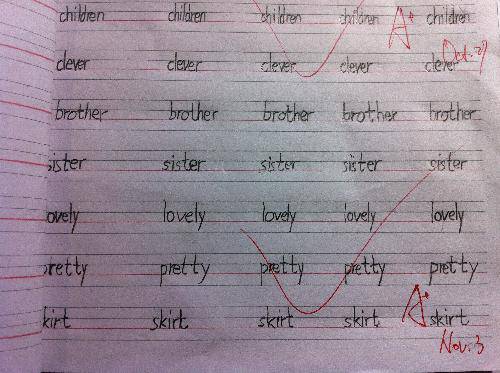 children children children children A+ children
Oct. 27
clever clever clever clever clever
brother brother brother brother brother
sister sister sister sister sister
lovely lovely lovely lovely lovely
pretty pretty pretty pretty pretty
skirt skirt skirt skirt A+ skirt
Nov. 3